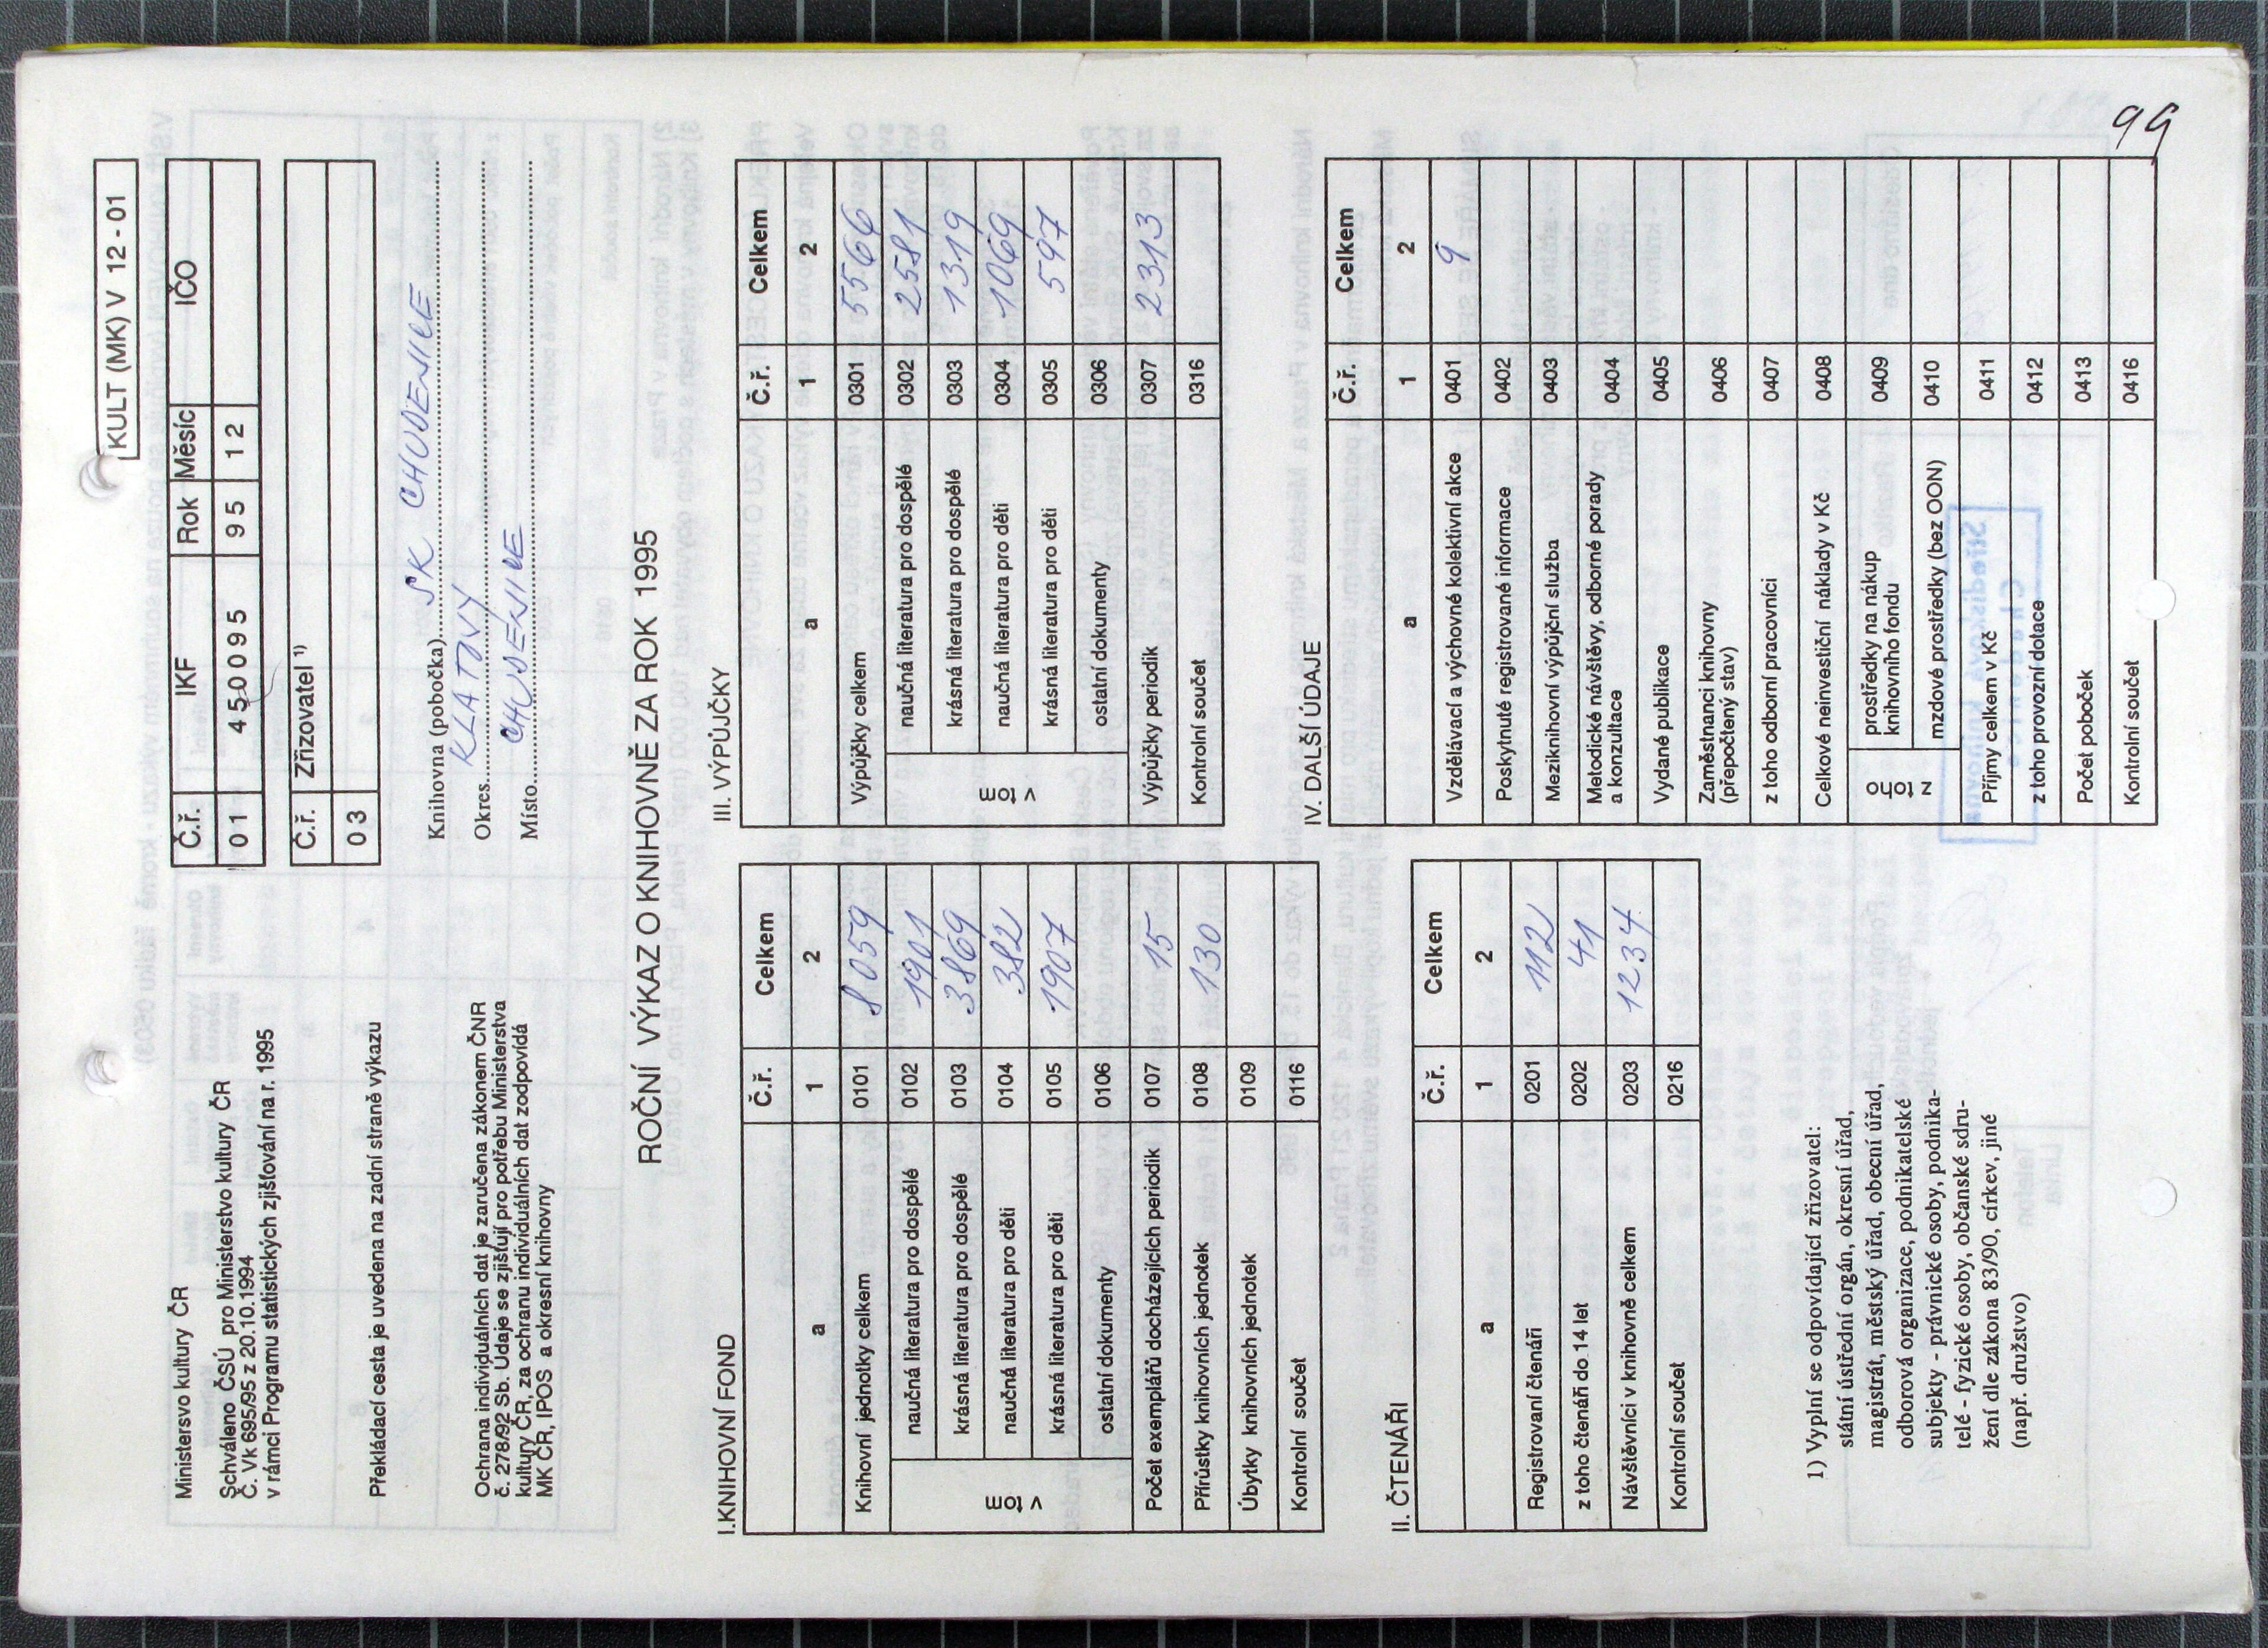 KULT (MK) V 12 - 01
Ministersvo kultury ČR
Schváleno ČSÚ pro Ministerstvo kultury ČR
Č. Vk 695/95 z 20.10.1994
v rámci Programu statistických zjišťování na r. 1995
Překládací cesta je uvedena na zadní straně výkazu
Ochrana individuálních dat je zaručena zákonem ČNR
č. 278/92 Sb. Údaje se zjišťují pro potřebu Ministerstva
kultury ČR, za ochranu individuálních dat zodpovídá
MK ČR, IPOS a okresní knihovny
Č.ř. IKF Rok Měsíc IČO
01 450095 95 12
Č.ř. Zřizovatel 1)
03
Knihovna (pobočka) SK CHUDENICE
Okres KLATOVY
Místo CHUDENICE
ROČNÍ VÝKAZ O KNIHOVNĚ ZA ROK 1995
I.KNIHOVNÍ FOND
Č.ř. Celkem
a 1 2
Knihovní jednotky celkem 0101 8059
v tom
naučná literatura pro dospělé 0102 1901
krásná literatura pro dospělé 0103 3869
naučná literatura pro děti 0104 382
krásná literatura pro děti 0105 1907
ostatní dokumenty 0106
Počet exemplářů docházejících periodik 0107 15
Přírůstky knihovních jednotek 0108 130
Úbytky knihovních jednotek 0109
Kontrolní součet 0116
II. ČTENÁŘI
Č.ř. Celkem
a 1 2
Registrovaní čtenáři 0201 112
z toho čtenáři do 14 let 0202 41
Návštěvníci v knihovně celkem 0203 1234
Kontrolní součet 0216
1) Vyplní se odpovídající zřizovatel:
státní ústřední orgán, okresní úřad,
magistrát, městský úřad, obecní úřad,
odborová organizace, podnikatelské
subjekty - právnické osoby, podnika-
telé - fyzické osoby, občanské sdru-
žení dle zákona 83/90, církev, jiné
(např. družstvo)
III. VÝPŮJČKY
Č.ř. Celkem
a 1 2
Výpůjčky celkem 0301 5566
v tom
naučná literatura pro dospělé 0302 2581
krásná literatura pro dospělé 0303 1319
naučná literatura pro děti 0304 1069
krásná literatura pro děti 0305 597
ostatní dokumenty 0306
Výpůjčky periodik 0307 2313
Kontrolní součet 0316
IV. DALŠÍ ÚDAJE
Č.ř. Celkem
a 1 2
Vzdělávací a výchovné kolektivní akce 0401 9
Poskytnuté registrované informace 0402
Meziknihovní výpůjční služba 0403
Metodické návštěvy, odborné porady
a konzultace 0404
Vydané publikace 0405
Zaměstnanci knihovny
(přepočtený stav) 0406
z toho odborní pracovníci 0407
Celkové neinvestiční náklady v Kč 0408
z toho
prostředky na nákup
knihovního fondu 0409
mzdové prostředky (bez OON) 0410
Příjmy celkem v Kč 0411
z toho provozní dotace 0412
Počet poboček 0413
Kontrolní součet 0416
99